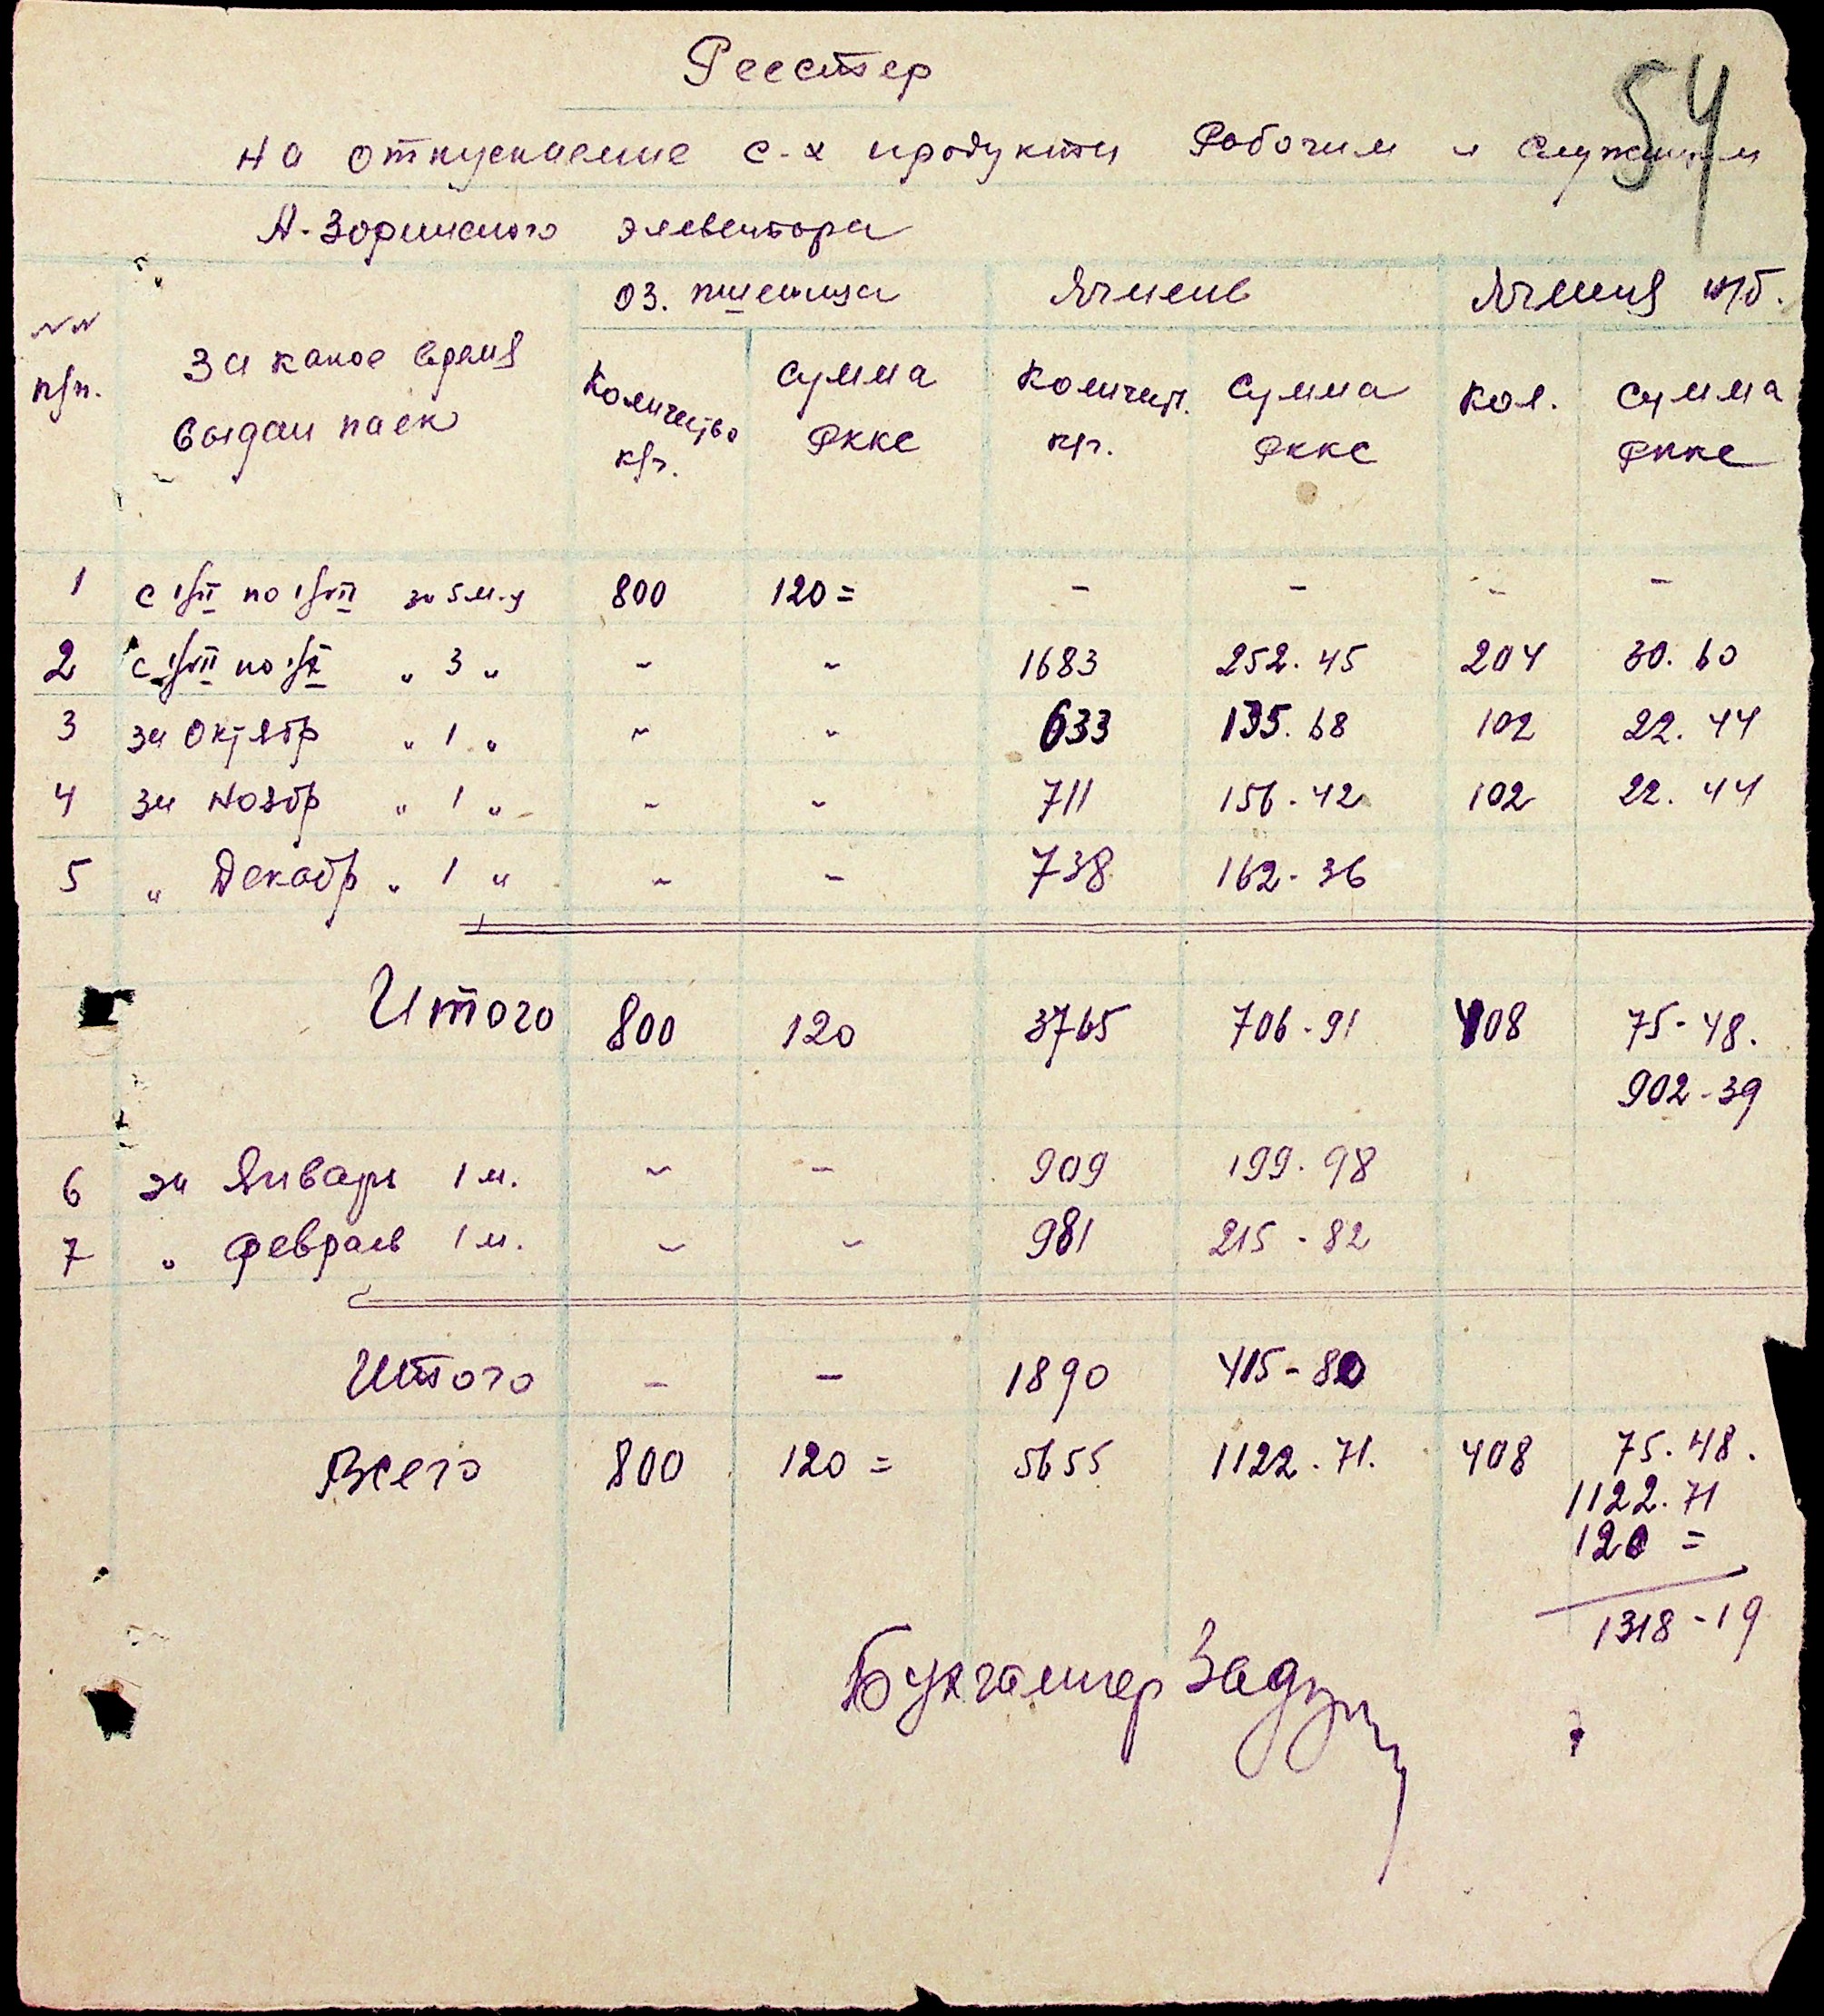 54
Реестер
на отпускаемие с-х продукты Рабочим и служащим
А-Зоринского элеватора
№№ п/п.
За какое время выдан паек
Оз. пшеница
Ячмень
Ячменя
Количество к/г.
Сумма
Количест. к/г.
Сумма
Кол.
Сумма
1 с 1/II по 1/VII за 5 м-ц 800 120 = - - - -
2 с 1/VII по 1/X " 3 " - - 1683 252.45 204 30.60
3 за Октябр " 1 " - - 633 135.68 102 22.44
4 за Ноябр " 1 " - - 711 156-42 102 22.44
5 " Декабр " 1 " - - 738 162-36
Итого 800 120 3765 706-91 408 75-48.
902-39
6 за Январь 1 м. - - 909 199.98
7 " февраль 1 м. - - 981 215-82
Итого - - 1890 415-80
Всего 800 120 = 5655 1122.71. 408 75.48.
1122.71
120 =
1318-19
Бухгалтер